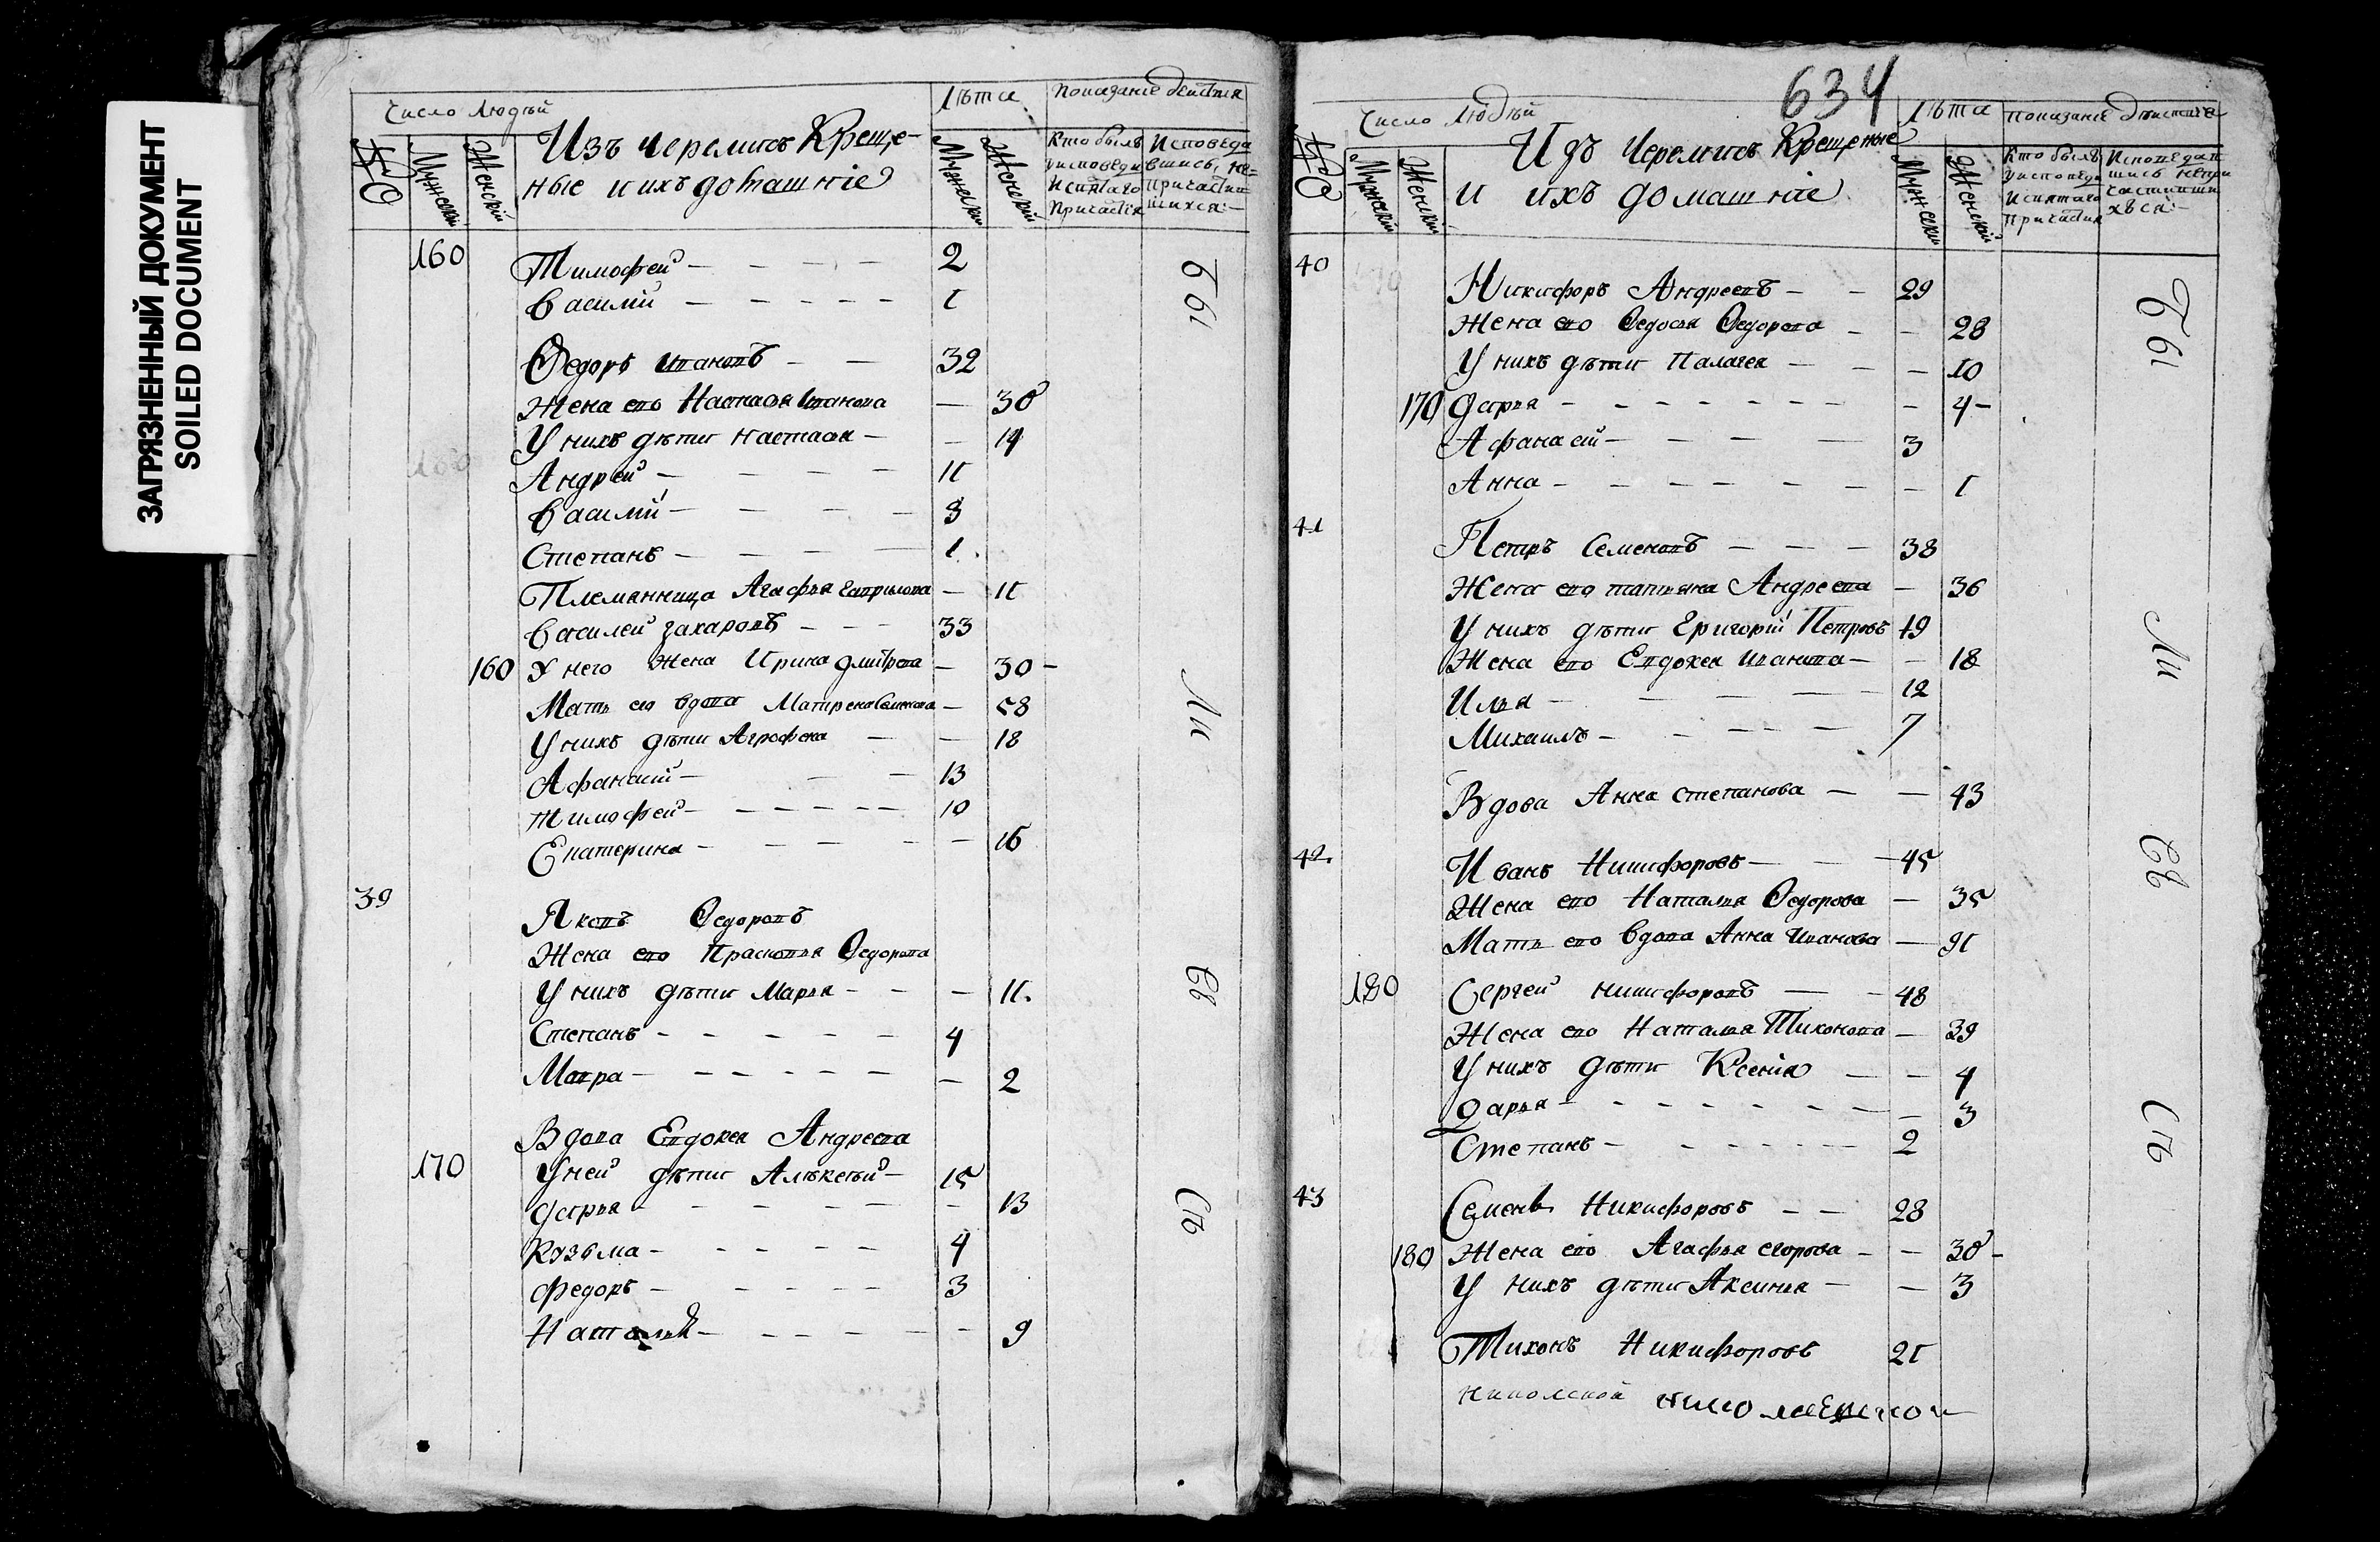 ЗАГРЯЗНЕННЫЙ ДОКУМЕНТ
SOILED DOCUMENT
Число Людѣй
Лѣта
Показание действия
№
Мужескій
Женскій
Изъ черемисъ Креще-
ные и ихъ домашніе
Мужескій
Женскій
Кто былъ
уисповеди
Исвятаго
Причастія
Исповеда
вшись, не-
причастив
шихся
160 Тимофей 2
Василій 1
Федоръ Ивановъ 32
Жена его Настасья Иванова 30
У нихъ дѣти Настасья 14
Андрей 11
Василій 3
Степанъ 1
Племянница Агафья Гаврилова 11
Василей Захаровъ 33
160 У него Жена Ирина Дмитрева 30
Мать его вдова Матрена Семенова 58
У нихъ дѣти Агрофена 18
Афанасий 13
Тимофей 10
Екатерина 16
39
Яковъ Федоровъ
Жена его Прасковья Федорова
У нихъ дѣти Марья 11
Степанъ 4
Мавра 2
Вдова Евдокея Андреева
170 У ней дѣти Алѣксѣй 15
Дарья 13
Козьма 4
Федоръ 3
Наталья 9
Бы
Ли
Св
Съ
634
Число Людѣй
Лѣта
Показание дѣиствие
№
Мужескій
Женскій
Изъ Черемисъ Крещеные
и ихъ домашніе
Мужески
Женскій
Кто былъ
уисповеди
Исвятаго
Причастия
Исповедав
шись непри
частивши
хвся
40
Никифоръ Андреевъ 29
Жена его Федосья Федорова 28
У нихъ дѣти Палагея 10
170 Дарья 4
Афанасий 3
Анна 1
41
Петръ Семеновъ 38
Жена его татьяна Андреева 36
У нихъ дѣти Григорій Петровъ 19
Жена его Евдокея Иванова 18
Илья 12
Михаилъ 7
Вдова Анна Степанова 43
42
Иванъ Никифоровъ 45
Жена его Наталья Федорова 35
Мать его вдова Анна Иванова 91
180 Сергей Никифоровъ 48
Жена его Наталья Тихонова 39
У нихъ дѣти Ксения 4
Дарья 3
Степанъ 2
43
Семенъ Никифоровъ 28
180 Жена его Агафья Егорова 30
У нихъ дѣти Аксинья 3
Тихонъ Никифоровъ 21
Бы
Ли
Св
Съ